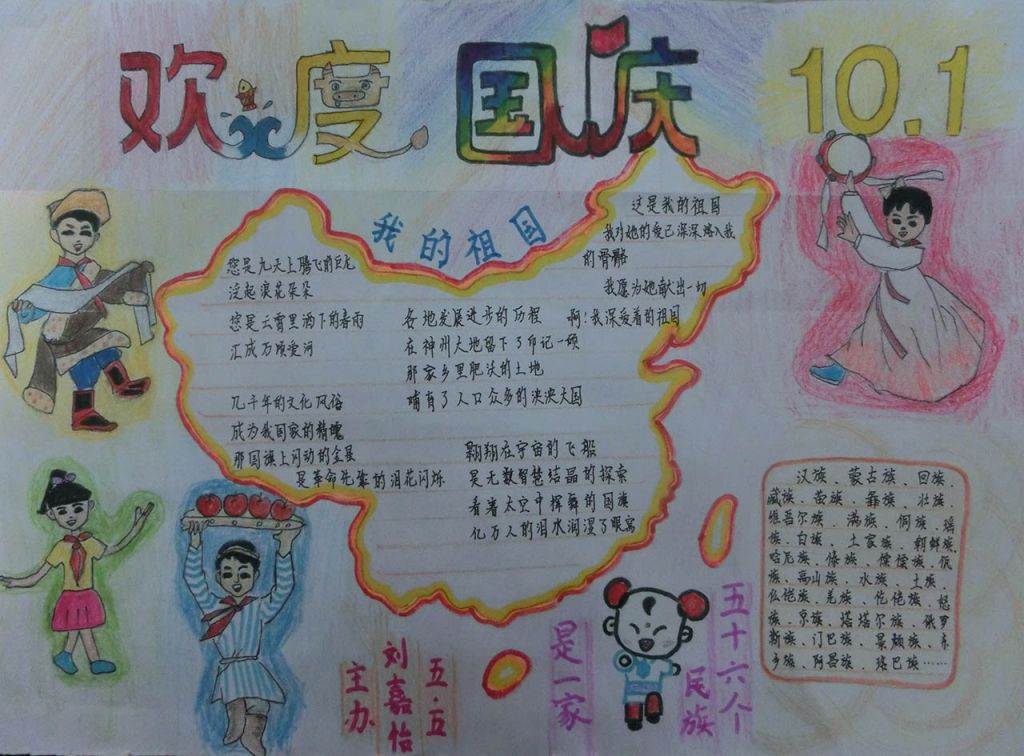 欢度国庆
10.1
我的祖国
您是九天上腾飞的巨龙
泛起浪花朵朵
您是云霄里洒下的春雨
汇成万顷爱河
几千年的文化风俗
成为我国家的精魂
那国旗上闪动的金晨
是革命先辈的泪花闪烁
各地发展进步的历程
在神州大地留下了印记一颗
那家乡里肥沃的土地
哺育了人口众多的泱泱大国
翱翔在宇宙的飞船
是无数智慧结晶的探索
看着太空中挥舞的国旗
亿万人的泪水润湿了眼窝
这是我的祖国
我对她的爱已深深熔入我
的骨髂
我愿为她献出一切
啊！我深爱着的祖国
汉族、蒙古族、回族、
藏族、苗族、彝族、壮族、
维吾尔族、满族、侗族、瑶
族、白族、土家族、朝鲜族、
哈尼族、傣族、傈僳族、佤
族、高山族、水族、土族、
仫佬族、羌族、仡佬族、怒
族、京族、塔塔尔族、俄罗
斯族、门巴族、景颇族、东
乡族、阿昌族、珞巴族……
五十六个
民族
是一家
五.五
刘嘉怡
主办